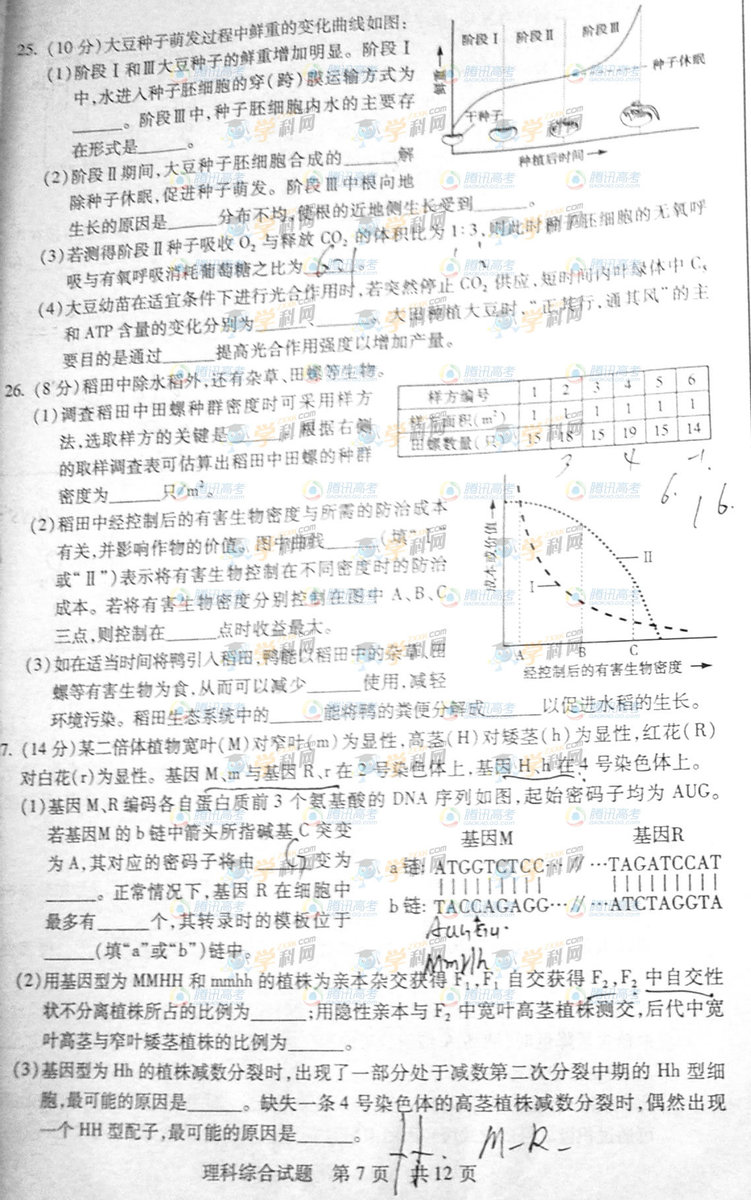 25. (10分)大豆种子萌发过程中鲜重的变化曲线如图:
(1)阶段Ⅰ和Ⅲ大豆种子的鲜重增加明显。阶段Ⅰ
中,水进入种子胚细胞的穿(跨)膜运输方式为
______。阶段Ⅲ中,种子胚细胞内水的主要存
在形式是______。
(2)阶段Ⅱ期间,大豆种子胚细胞合成的______解
除种子休眠,促进种子萌发。阶段Ⅲ中根向地
生长的原因是______分布不均,使根的近地侧生长受到______。
(3)若测得阶段Ⅱ种子吸收O₂与释放CO₂的体积比为1:3,则此时种子胚细胞的无氧呼
吸与有氧呼吸消耗葡萄糖之比为______。
(4)大豆幼苗在适宜条件下进行光合作用时,若突然停止CO₂供应,短时间内叶绿体中C₅
和ATP含量的变化分别为______、______。大田种植大豆时,“正其行,通其风”的主
要目的是通过______提高光合作用强度以增加产量。
阶段Ⅰ 阶段Ⅱ 阶段Ⅲ
鲜重
种子休眠
干种子
种植后时间
26. (8分)稻田中除水稻外,还有杂草、田螺等生物。
(1)调查稻田中田螺种群密度时可采用样方
法,选取样方的关键是______。根据右侧
的取样调查表可估算出稻田中田螺的种群
密度为______只/m²。
样方编号 1 2 3 4 5 6
样方面积(m²) 1 1 1 1 1 1
田螺数量(只) 15 18 15 19 15 14
3 4 -1
6. 16.
(2)稻田中经控制后的有害生物密度与所需的防治成本
有关,并影响作物的价值。图中曲线______(填“Ⅰ”
或“Ⅱ”)表示将有害生物控制在不同密度时的防治
成本。若将有害生物密度分别控制在图中A、B、C
三点,则控制在______点时收益最大。
成本或价值
Ⅰ Ⅱ
A B C
经控制后的有害生物密度
(3)如在适当时间将鸭引入稻田,鸭能以稻田中的杂草、田
螺等有害生物为食,从而可以减少______使用,减轻
环境污染。稻田生态系统中的______能将鸭的粪便分解成______以促进水稻的生长。
7. (14分)某二倍体植物宽叶(M)对窄叶(m)为显性,高茎(H)对矮茎(h)为显性,红花(R)
对白花(r)为显性。基因M、m与基因R、r在2号染色体上,基因H、h在4号染色体上。
(1)基因M、R编码各自蛋白质前3个氨基酸的DNA序列如图,起始密码子均为AUG。
若基因M的b链中箭头所指碱基C突变
为A,其对应的密码子将由______变为
______。正常情况下,基因R在细胞中
最多有______个,其转录时的模板位于
______(填“a”或“b”)链中。
基因M 基因R
a链: ATGGTCTCC···//···TAGATCCAT
b链: TACCAGAGG···//···ATCTAGGTA
(2)用基因型为MMHH和mmhh的植株为亲本杂交获得F₁,F₁自交获得F₂,F₂中自交性
状不分离植株所占的比例为______;用隐性亲本与F₂中宽叶高茎植株测交,后代中宽
叶高茎与窄叶矮茎植株的比例为______。
(3)基因型为Hh的植株减数分裂时,出现了一部分处于减数第二次分裂中期的Hh型细
胞,最可能的原因是______。缺失一条4号染色体的高茎植株减数分裂时,偶然出现
一个HH型配子,最可能的原因是______。
M-R-
理科综合试题 第7页 共12页
腾讯高考
学科网